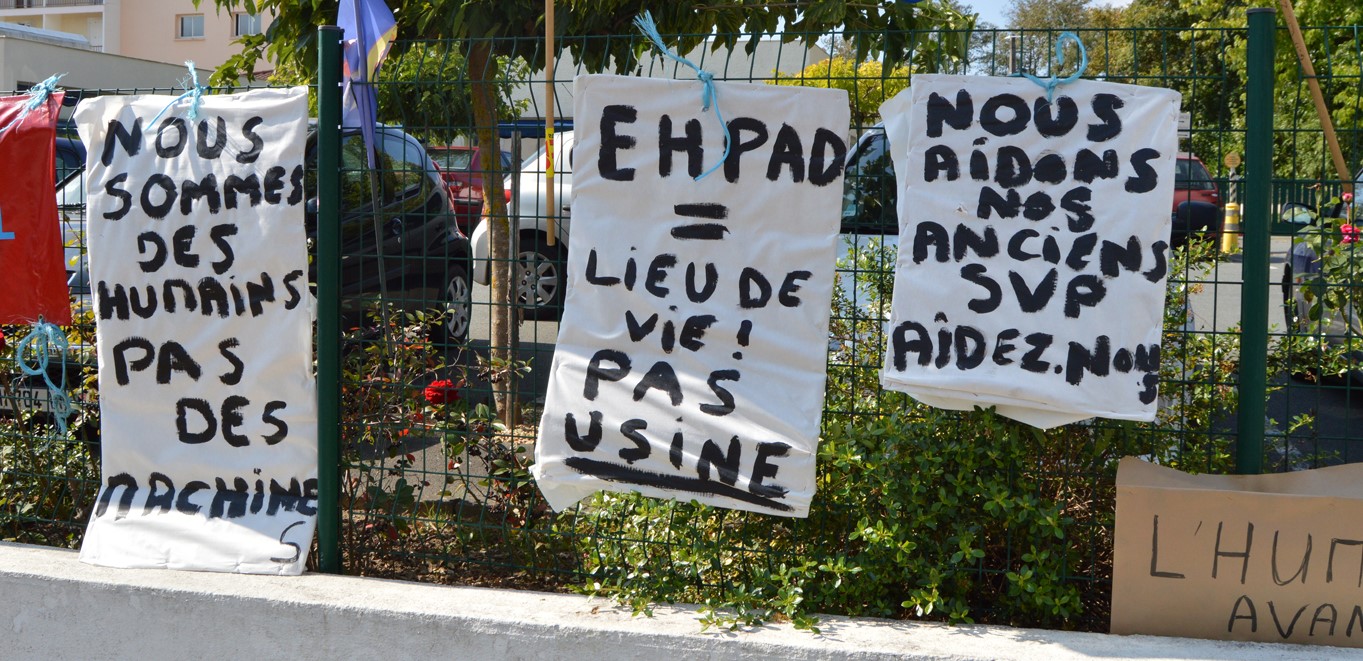 NOUS
SOMMES
DES
HUMAINS
PAS
DES
MACHINE
S
EHPAD
=
LIEU DE
VIE!
PAS
USINE
NOUS
AÎDONS
NOS
ANCIENS
SVP
AÎDEZ.NOU
S
L'HUM
AVAN